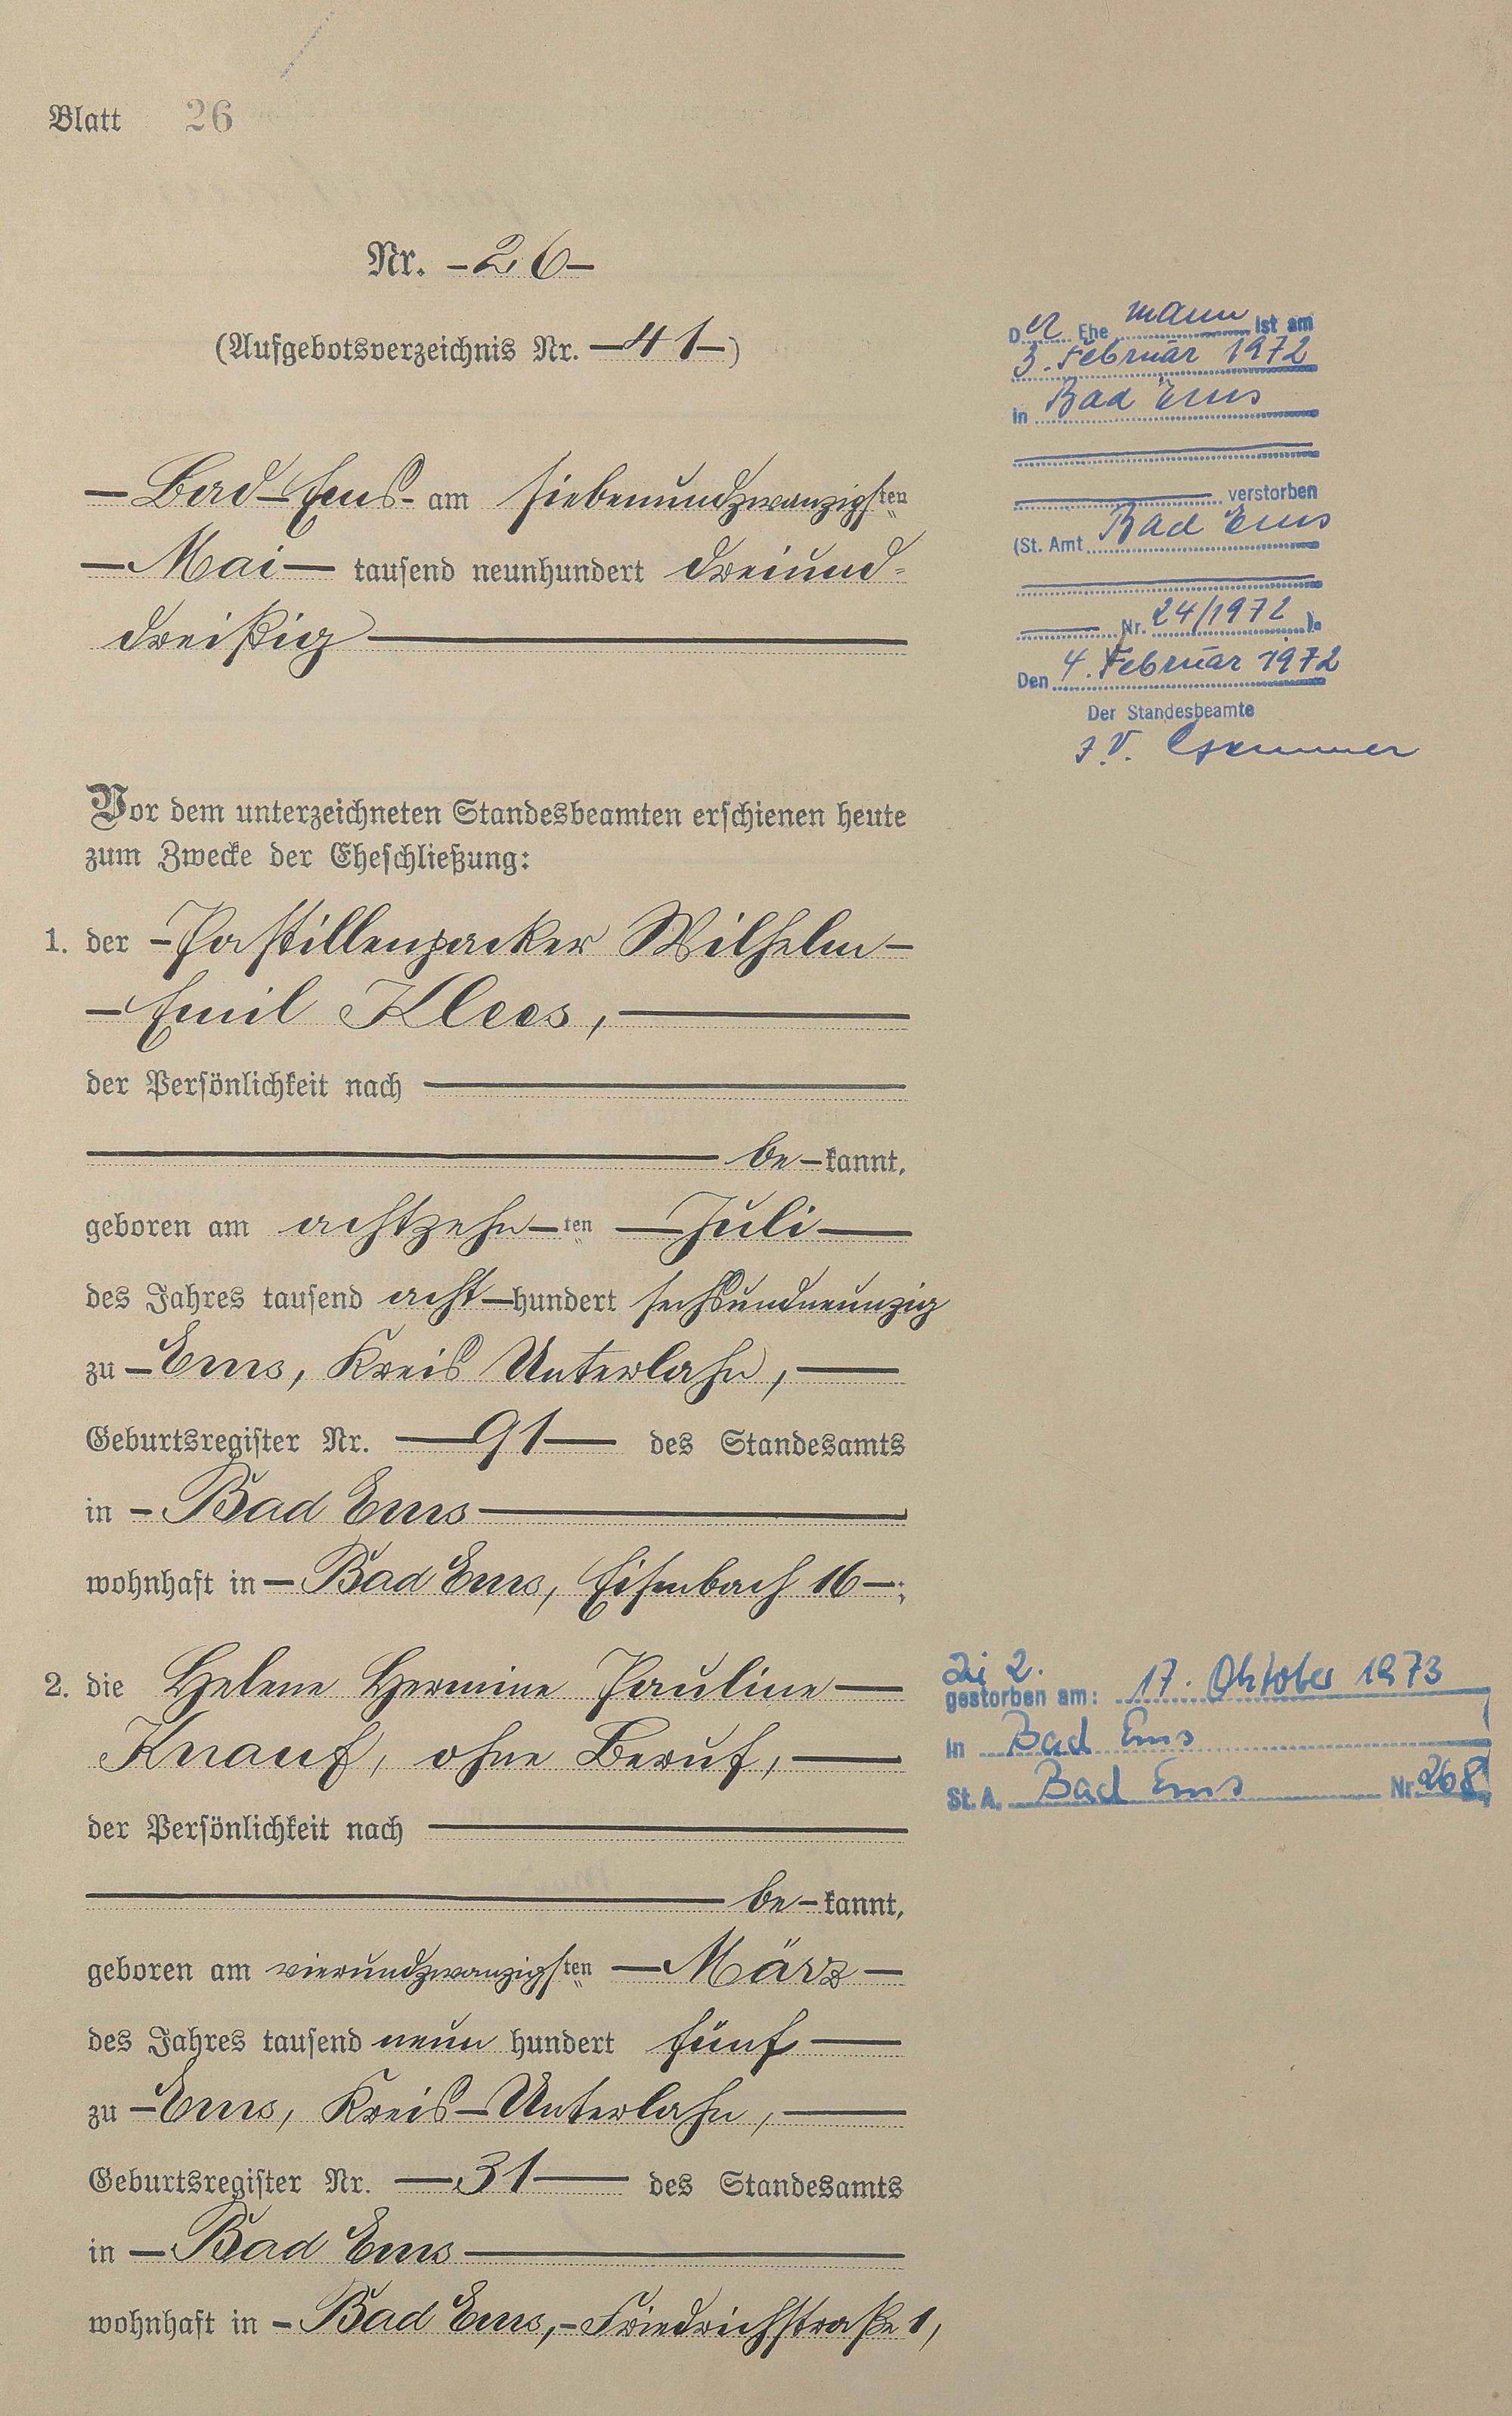 Blatt 26
Nr. -26-
(Aufgebotsverzeichnis Nr. -41-)
- Bad-Ems- am siebenundzwanzigsten
- Mai - tausend neunhundert dreiund-
dreißig
Vor dem unterzeichneten Standesbeamten erschienen heute
zum Zwecke der Eheschließung:
1. der - Pastillenpacker Wilhelm -
- Emil Klees,
der Persönlichkeit nach
be-kannt,
geboren am achtzehn-ten - Juli -
des Jahres tausend acht-hundert sechsundneunzig
zu - Ems, Kreis Unterlahn,
Geburtsregister Nr. - 91 - des Standesamts
in - Bad Ems
wohnhaft in - Bad Ems, Eisenbach 16 - ;
2. die Helene Hermine Pauline -
Knauf, ohne Beruf,
der Persönlichkeit nach
be-kannt,
geboren am vierundzwanzigsten - März -
des Jahres tausend neun hundert fünf
zu - Ems, Kreis - Unterlahn,
Geburtsregister Nr. - 31 - des Standesamts
in - Bad Ems
wohnhaft in - Bad Ems, - Friedrichstraße 1,
Der Ehemann ist am
3. Februar 1972
in Bad Ems
verstorben
(St. Amt Bad Ems
Nr. 24/1972).
Den 4. Februar 1972
Der Standesbeamte
I.V.
Zu 2.
gestorben am: 17. Oktober 1973
in Bad Ems
St. A. Bad Ems Nr. 268